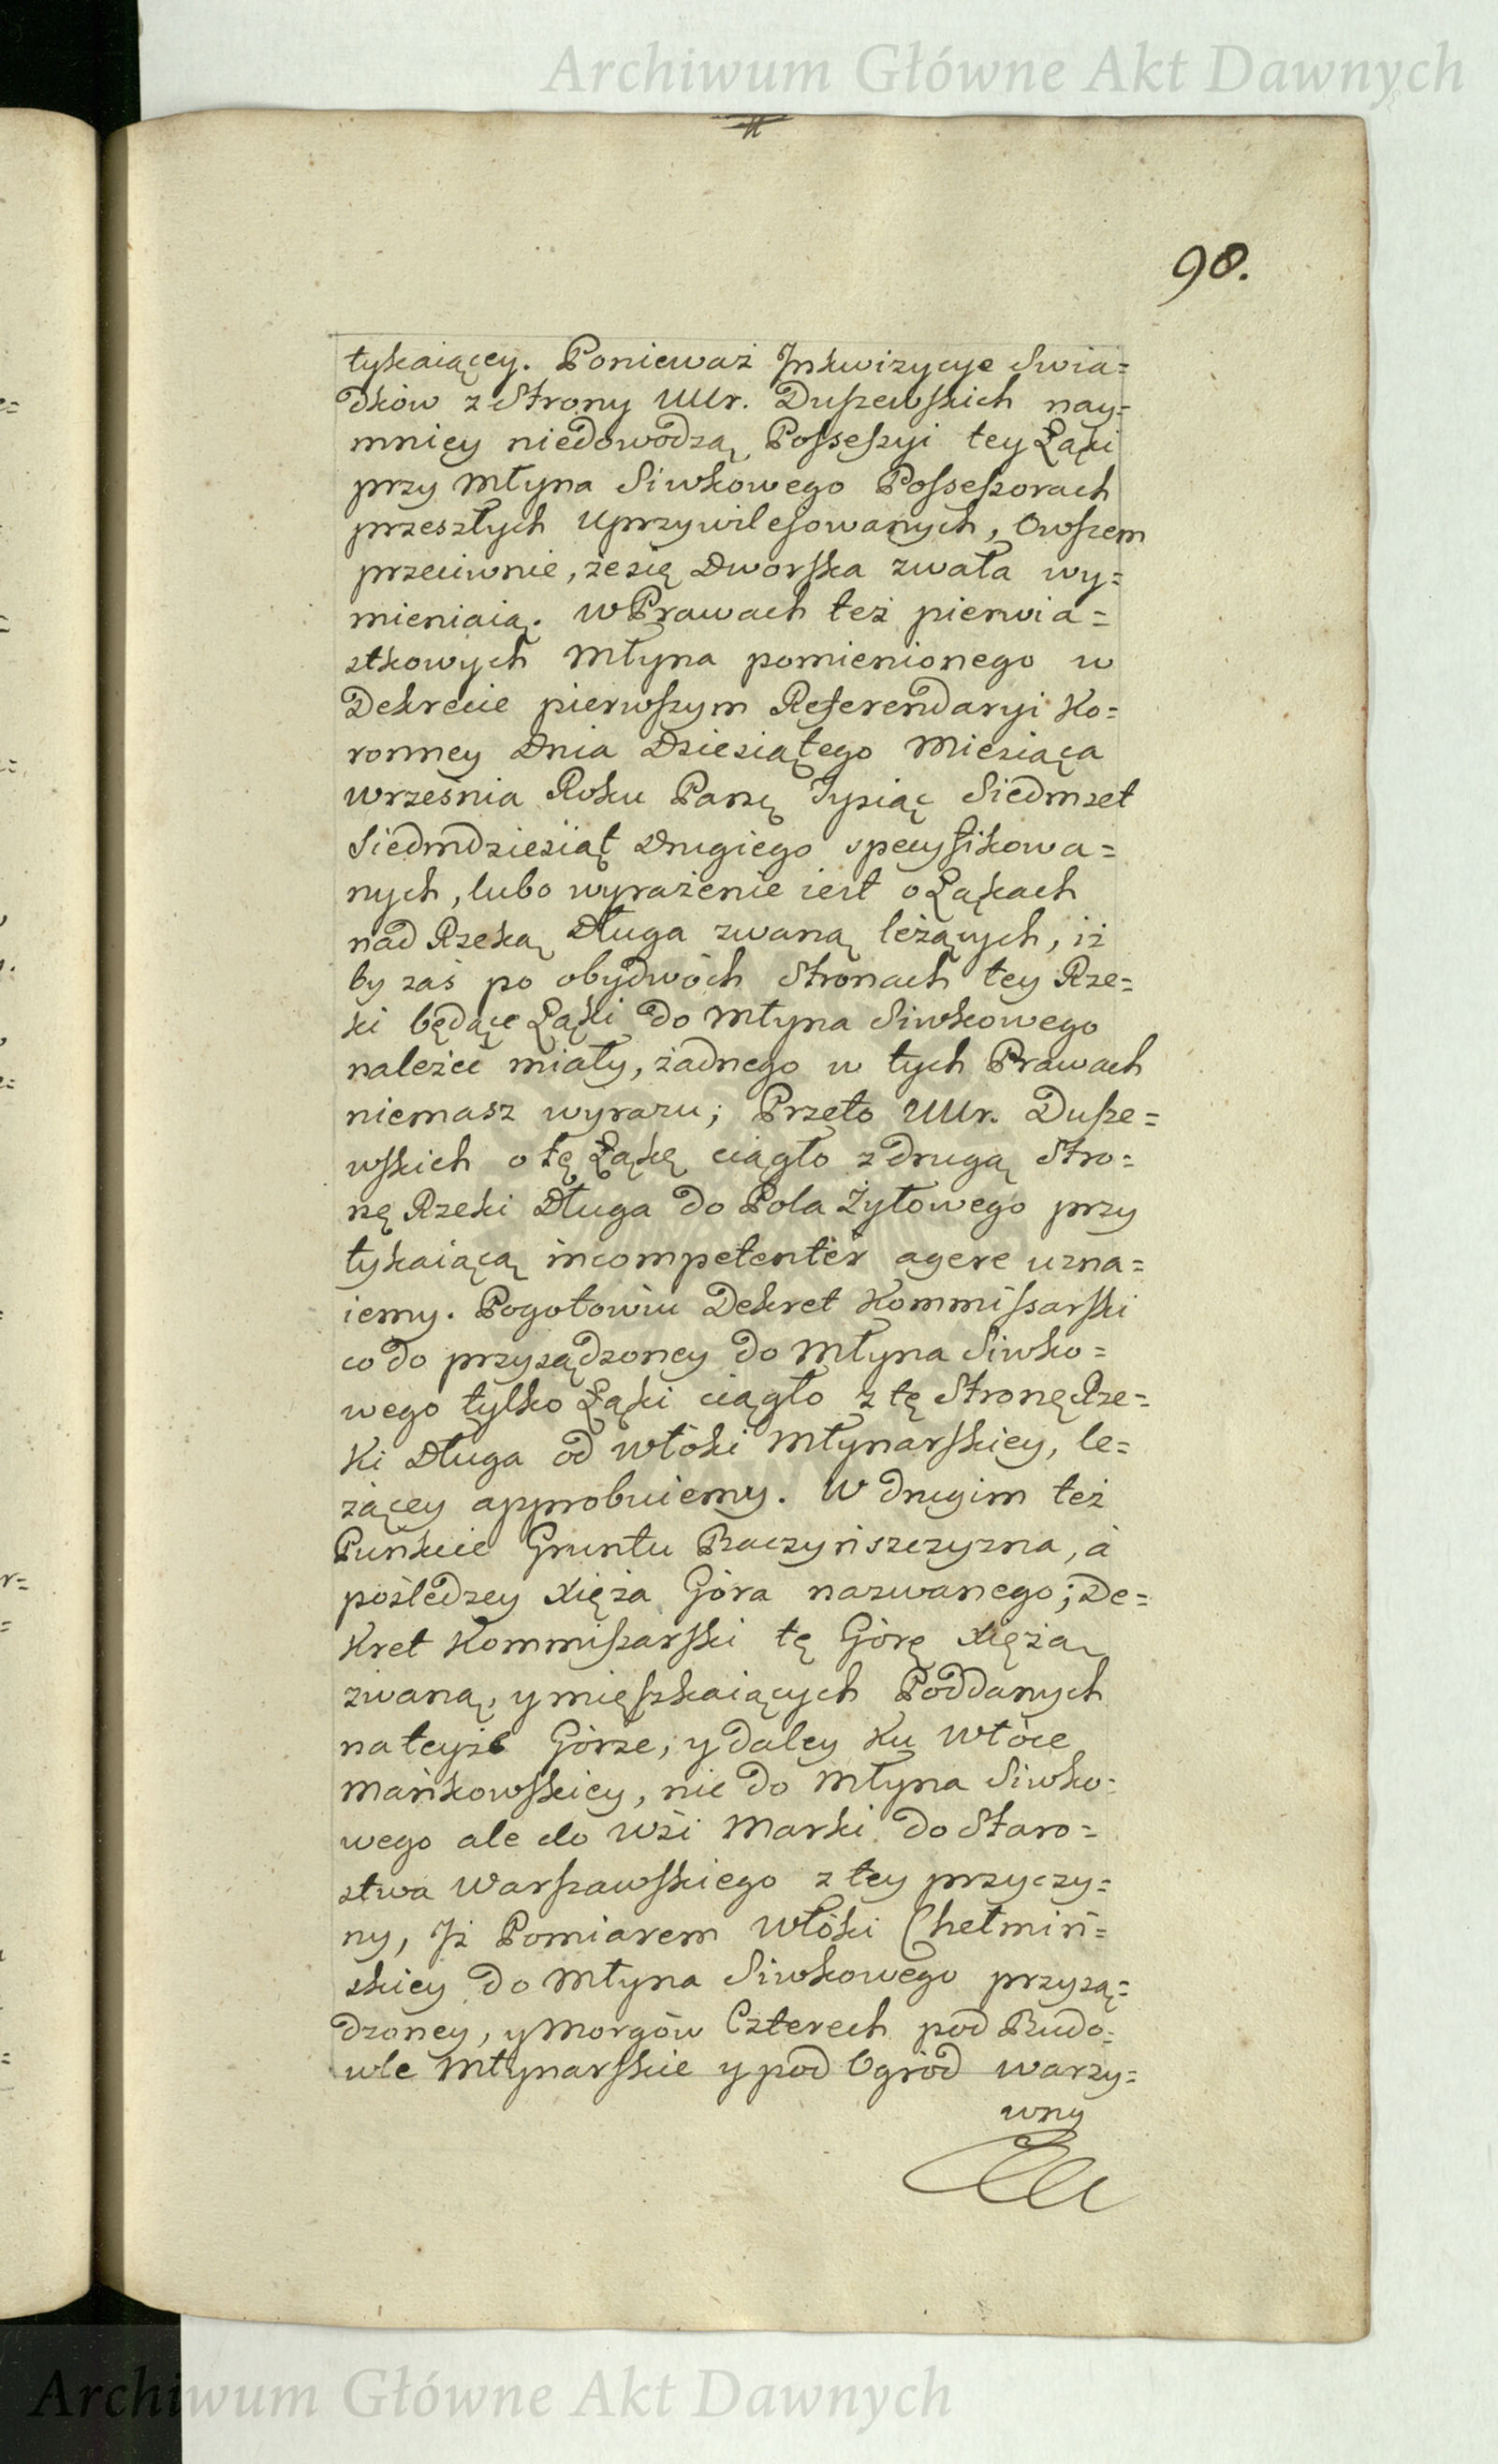 Archiwum Główne Akt Dawnych
98.
tykaiącey. Ponieważ Inkwizycye Swia=
dków z Strony UUr. Duszewskich nay=
mniey niedowodzą Possessyi tey Łąki
przy Młyna Siwkowego Possessorach
przeszłych uprzywilejowanych, Owszem
przeciwnie, że się Dworska zwała wy=
mieniaią. W Prawach też pierwia=
stkowych Młyna pomienionego w
Dekrecie pierwszym Referendaryi Ko=
ronney Dnia Dziesiątego Miesiąca
Września Roku Pansę Tysiąc Siedmset
Siedmdziesiąt Drugiego specyfikowa=
nych, lubo wyrażenie iest o Łąkach
nad Rzeką Długa zwaną leżących, iż
by zaś po obydwóch Stronach tey Rze=
ki będące Łąki do Młyna Siwkowego
należeć miały, żadnego w tych Prawach
niemasz wyrazu; Przeto UUr. Dusze=
wskich o tę Łąkę ciągło z drugą Stro=
nę Rzeki Długa do Pola Żytowego przy
tykaiącą incompetenter agere uzna=
iemy. Pogotowiu Dekret Kommissarski
co do przysądzoney do Młyna Siwko=
wego tylko Łąki ciągło z tę Stronę Rze=
ki Długa od Włóki Młynarskiey, le=
żącey approbuiemy. W drugim też
Punkcie Gruntu Raczyńszczyzna, a
poźledzey Xięża Góra nazwanego; De=
kret Kommissarski tę Górę Xięża
zwaną, y mięszkaiących Poddanych
na teyże Górze, y daley ku Włóce
Mańkowskiey, nie do Młyna Siwko=
wego ale do Wsi Marki do Staro=
stwa Warszawskiego z tey przyczy=
ny, Iż Pomiarem Włóki Chełmiń=
skiey do Młyna Siwkowego przysą=
dzoney, y Morgów Czterech pod Budo=
wle Młynarskie y pod Ogród warzy=
wny
Archiwum Główne Akt Dawnych